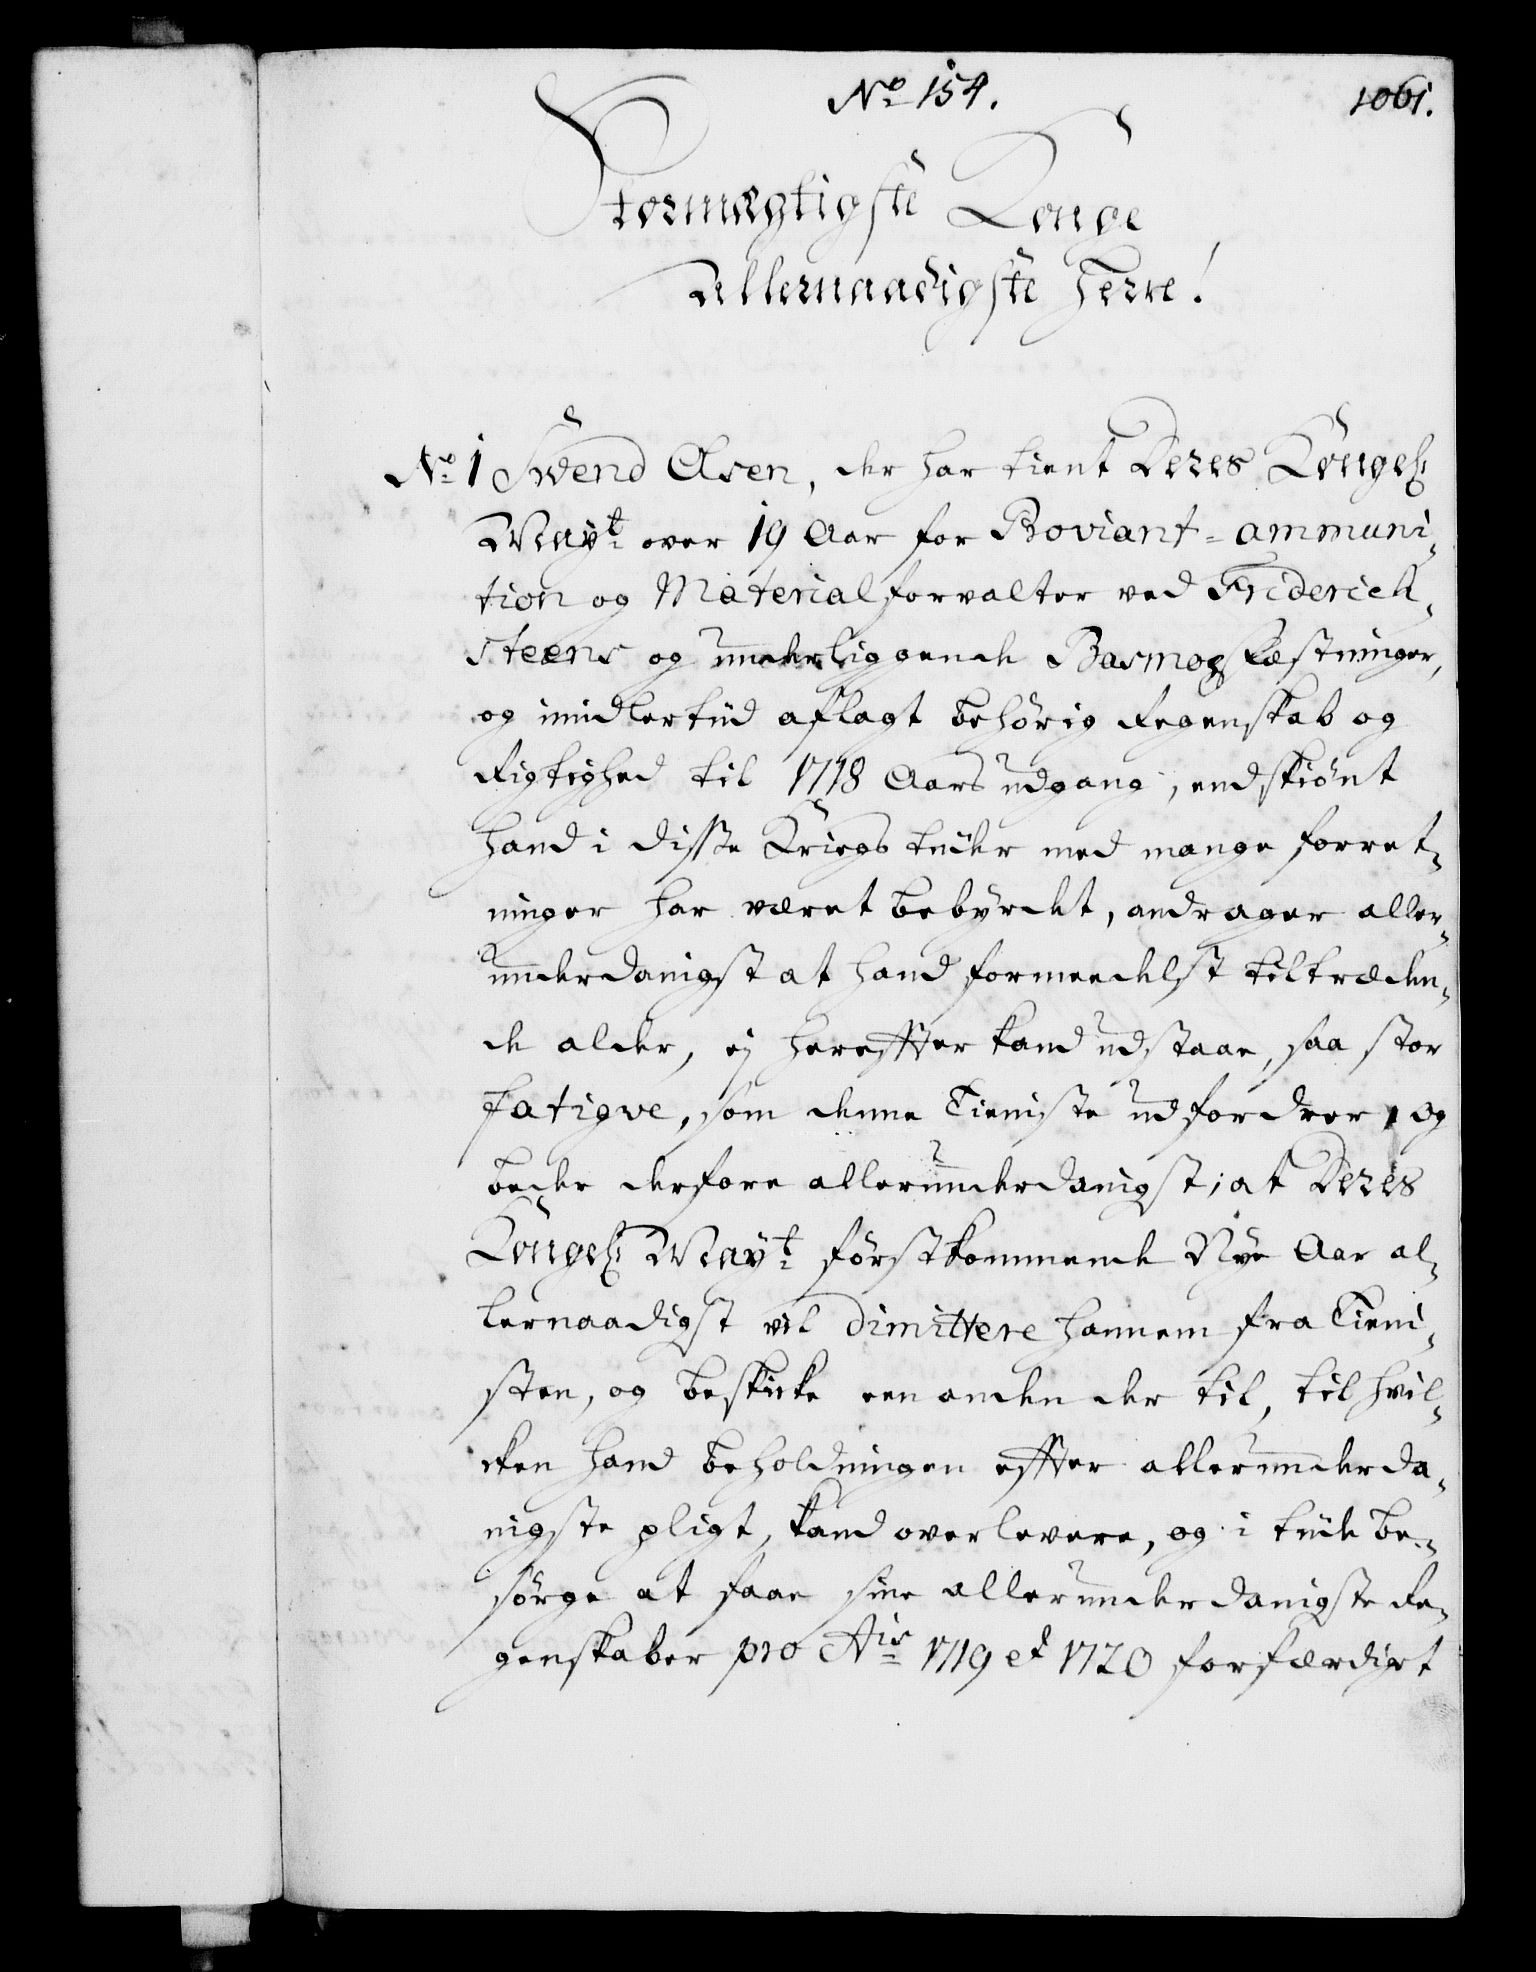 No 154. 1061.
Stormægtigste Konge
Allernaadigste Herre!
No 1 Svend Olsen, der har tient Deres Kongel:
Mayt: over 19 Aar for Proviant- ammuni-
tion og Material forvalter ved Friderich-
steens og underliggende Basmoe Fæstninger,
og imidlertiid aflagt behörig Regenskab og
Rigtighed til 1718 Aars udgang, endskiönt
hand i disse Kriegs tiider med mange forret-
ninger har været bebyrdet, andrager aller-
underdanigst at hand formeedelst tiltræden-
de alder, ej herefter kand udstaae, saa stor
fatigve, som denne Tieniste udfordrer, og
beder derfore allerunderdanigst, at Deres
Kongel: Mayt: förstkommende Nye Aar al-
lernaadigst vil dimittere hannem fra Tieni-
sten, og beskicke een anden der til, til hvil-
cken hand beholdningen efter allerunderda-
nigste pligt, kand overlevere, og i tiide be-
sörge at faae sine allerunderdanigste Re-
genskaber pro Ais 1719 et 1720 forfærdiget